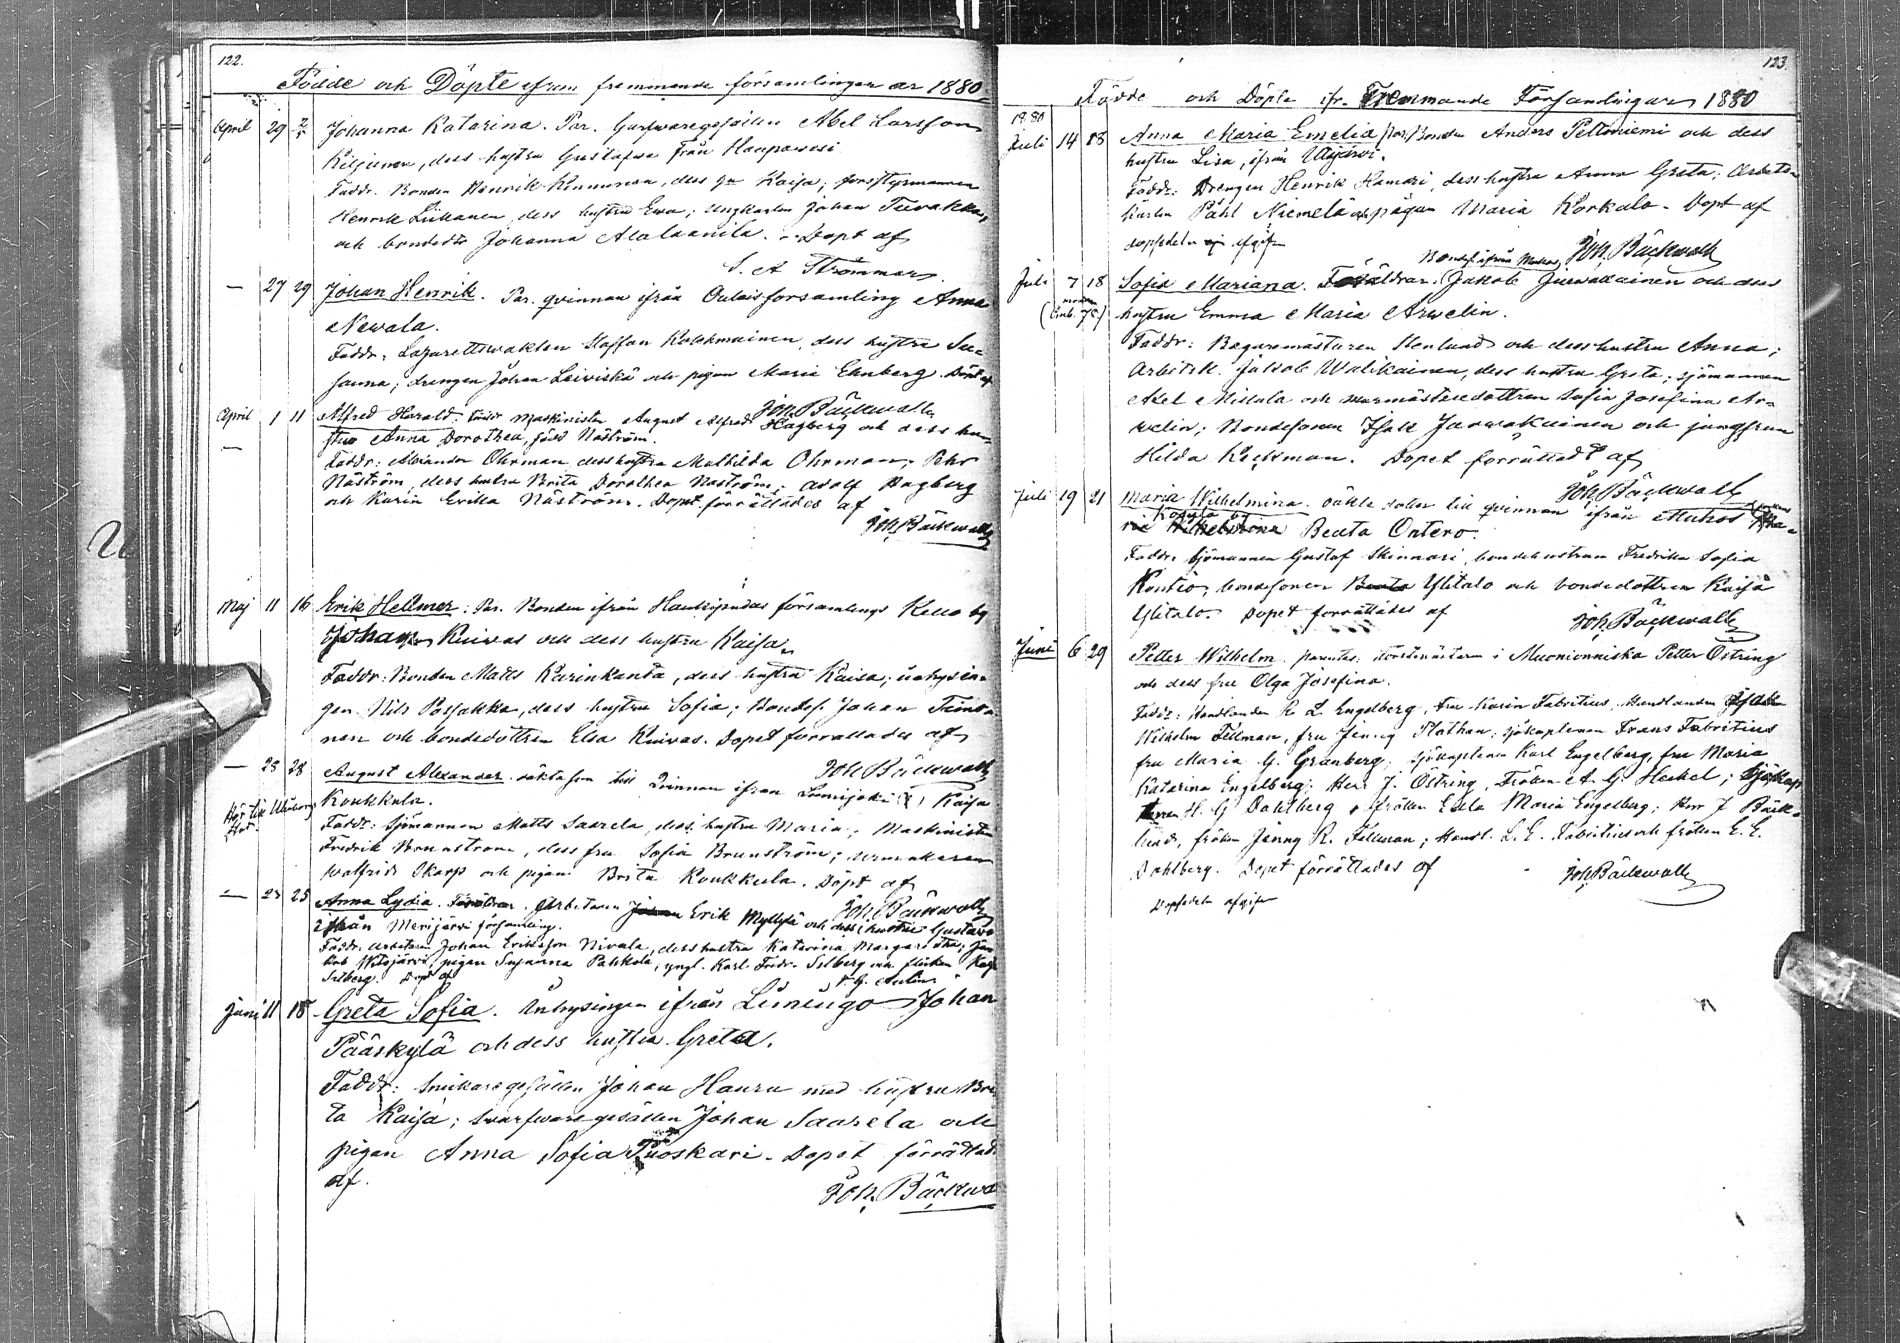 122.
Födde och Döpte ifrån fremmande församlingar år 1880
April 29 2/5 Johanna Katarina. Par. Garfwaregesällen Abel Larsson
Kiljunen, dess hustru Gustafva från Haapavesi
Faddr. Bonden Henrik Kinnunen, dess hu Kaisa; forsstyrmannen
Henrik Liikanen, dess hustru Ewa; ungkarlen Johan Turakka,
och bondedtr Johanna Alalaanila. Döpt af
S. A. Strömmer
— 27 29 Johan Henrik. Par. qvinnan ifrån Oulais församling Anna
Newala.
Faddr: Lazarettswakten Staffan Kolehmainen, dess hustru Su-
sanna; drengen Johan Leiviskä och pigan Maria Ehnberg. Döpt af
Joh. Bäckwall
April 1 11 Alfred Harald. Förädr Maskinisten August Alfred Hagberg och dess hu-
stru Anna Dorothea, född Näström.
Faddr: Alexander Öhrman, dess hustru Mathilda Öhrman; Pehr
Näström, dess hustru Brita Dorothea Näström; Adolf Hagberg
och Karin Erika Näström. Dopet förrättades af
Joh. Bäckwall
Maj 11 16 Erik Hellmer: Par. Bonden ifrån Haukipudas församlings Kello by
Johan Kuivas och dess hustru Kaisa.
Faddr: Bonden Matts Karinkanta, dess hustru Kaisa; inhysin-
gen Nils Posjakka, dess hustru Sofia; Bondes. Johan Timo-
nen och bondedottren Elsa Kuivas. Dopet förrättades af
Joh Bäckwall
— 25 28 August Alexander. oäkta son till Qvinnan ifrån Lumijoki Kaisa
Koukkula.
Hör till Uleåborgs
Stad
Faddr: Sjömannen Matts Saarela, dess hustru Maria; Maskinisten
Fredrik Brunström, dess fru Sofia Brunström; urmakaren
Walfrid Skarp och pigan Brita Koukkula. Döpt af
Joh. Bäckwall
— 23 25 Anna Lydia. Föräldrar. Arbetaren Erik Myllylä och dess hustru Gustava
ifrån Merijärvi församling.
Faddr: arbetaren Johan Eriksson Nivala, dess hustru Katarina Margaretha; Ja-
kob Witojärvi, pigan Susanna Pahkola, yngl. Karl Fredr. Silberg och flickan Kaisa
Silberg. Döpt af
Juni 11 18 Greta Sofia. Inhysingen ifrån Limingo Johan
Pääskylä och dess hustru Greta.
Faddr: Snickaregesällen Johan Hauru med hustru Bri-
ta Kaisa; Swarfwaregesällen Johan Saarela och
pigan Anna Sofia Puoskari. Dopet förrättad
af.
Joh. Bäckwa
123.
Födde och Döpte ifr. Fremmande Församlingar 1880
1880
Juli 14 18 Anna Maria Emelia Par. Bonden Anders Peltoniemi och dess
hustru Lisa, ifrån
Faddr: Drengen Henrik Hamari, dess hustru Anna Greta; Arbets-
karlen Påhl Niemelä och pigan Maria Korkalo. Döpt af
dopsedeln ej afgifn
Joh. Bäckwall
Juli 7 18 Sofia Mariana. Föräldrar. Bondes. ifrån Muhos, Jakob Juewakainen och dess
hustru Emma Maria Arwelin.
Faddr: Bagaremästaren Stenlund och dess hustru Anna;
Arbetsk. Jakob Walikainen, dess hustru Greta; sjömannen
Axel Mikkala och murmästeredottren Sofia Josefina Ar-
welin; Bondesonen Isak Juewakainen och jungfrun
Hilda Keckman. Dopet förrättad af
Joh. Bäckwall
Juli 19 21 Maria Wilhelmina. oäkta dotter till qvinnan ifrån Muhos
Beata Ontero.
Faddr. Sjömannen Gustaf Skinnari, bondehustrun Fredrika Sofia
Kontio, bondesonen Ylitalo och bondedottren Kaisa
Ylitalo. Dopet förrättades af
Joh. Bäckwall
Juni 6 29 Petter Wilhelm. parentes: Forstmästaren i Muonionniska Petter Östring
och dess fru Olga Josefina.
Faddr: Handlanden R. L. Engelberg, fru Karin Fabritius, Handlanden
Wilhelm Fellman, fru Jenny Plathan; sjökaptenen Frans Fabritius
fru Maria G. Granberg; sjökaptenen Karl Engelberg, fru Maria
Katarina Engelberg; Herr J. Östring, fröken A. G. Heckel; Sjökap-
tenen H. G. Dahlberg, fröken Edla Maria Engelberg; Herr J Bäck-
lund, fröken Jenny R. Fellman; Handl. L. E. Fabritius och fröken E. E.
Dahlberg. Dopet förrättades af
Joh. Bäckwall
Dopsedeln afgifn